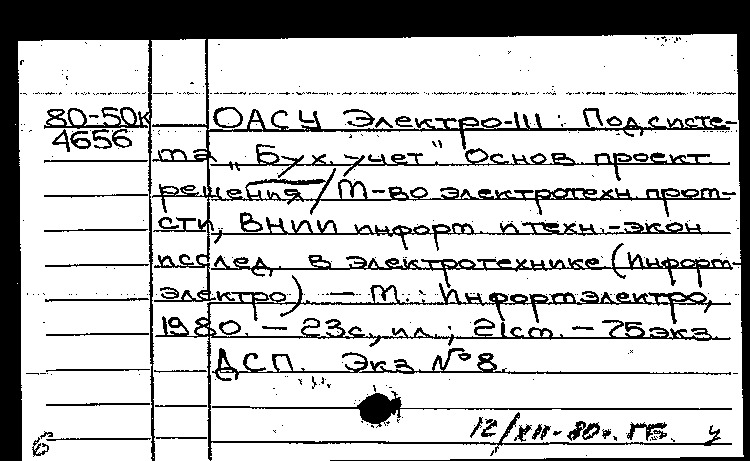 80-50к
4656
ОАСУ Электро-III: Подсисте-
ма „Бух. учет." Основ. проект.
решения / М-во электротехн. пром-
сти, ВНИИ информ. и техн.-экон.
исслед. в электротехнике (Информ-
электро). — М.: Информэлектро,
1980. — 23с., ил.; 21см. — 75экз.
ДСП. Экз. №8.
12/XII-80г. ГБ. у
б